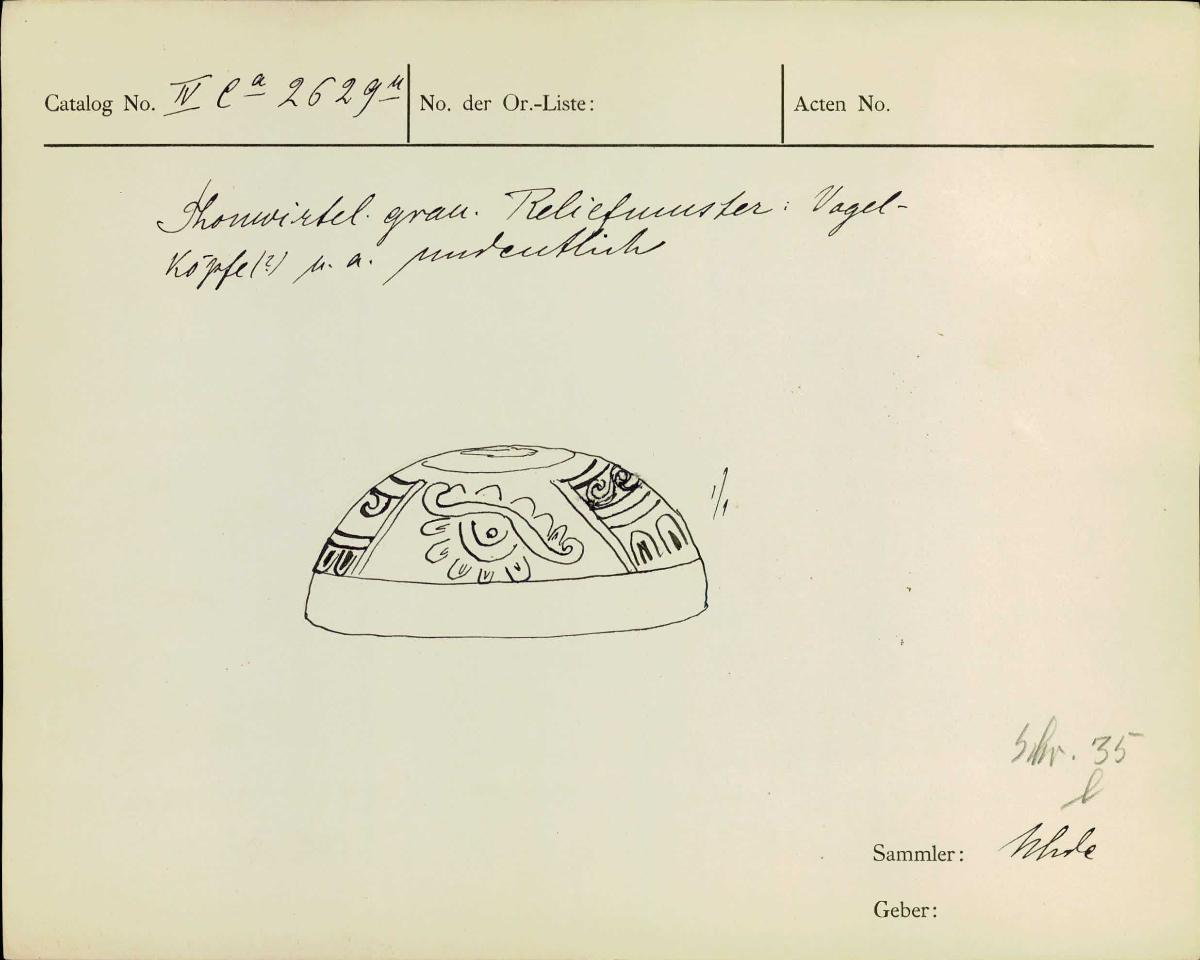 Catalog No. IV Ca 2629u No. der Or.-Liste: Acten No.
Thonwirtel. grau. Reliefmuster: Vogel-
Köpfe(?) u. a. undeutlich
1/1
Schr. 35
l
Sammler: Uhde
Geber: